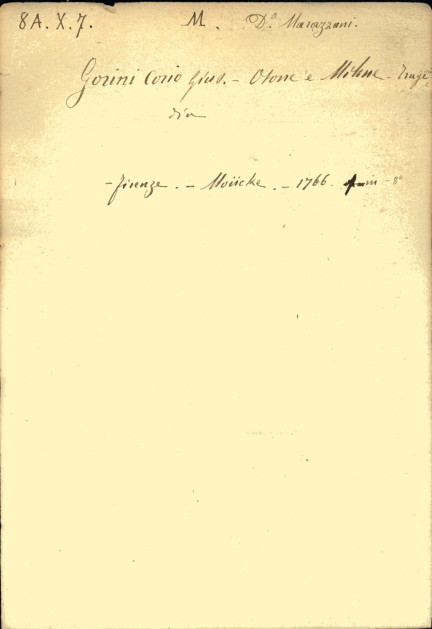 8A.X.7. M. D.ª Marazzani.
Gorini Corio Gius. - Otone e - Trage
dia
- Firenze. - Moücke. - 1766. in - 8º